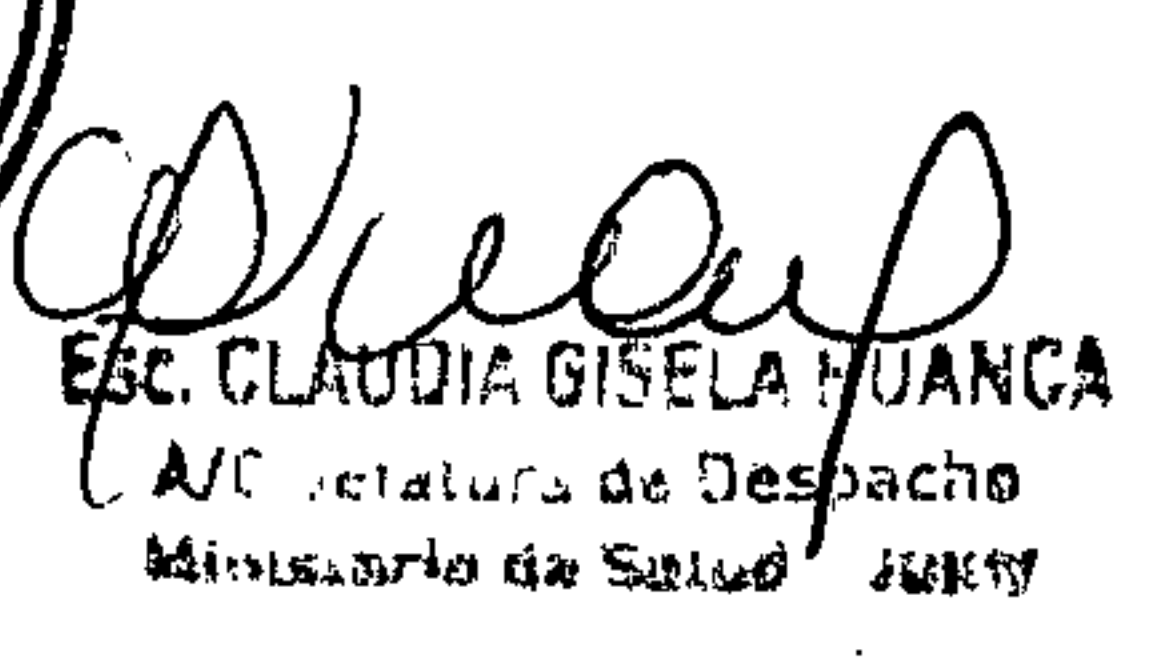 ESC. CLAUDIA GISELA HUANCA
A/C Jefatura de Despacho
Ministerio de Salud JUJUY